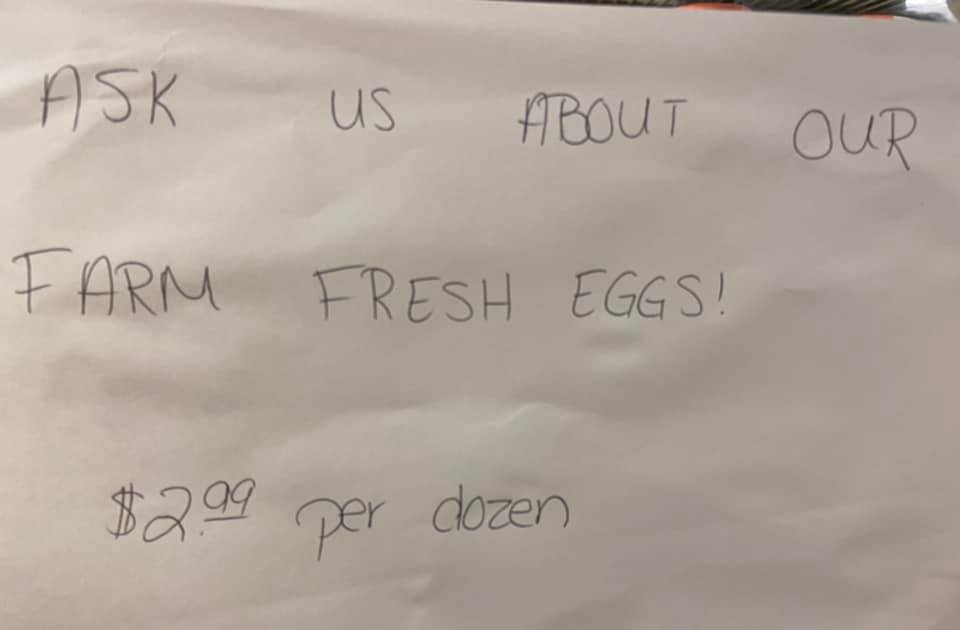 ASK US ABOUT OUR
FARM FRESH EGGS!
$2.99 per dozen